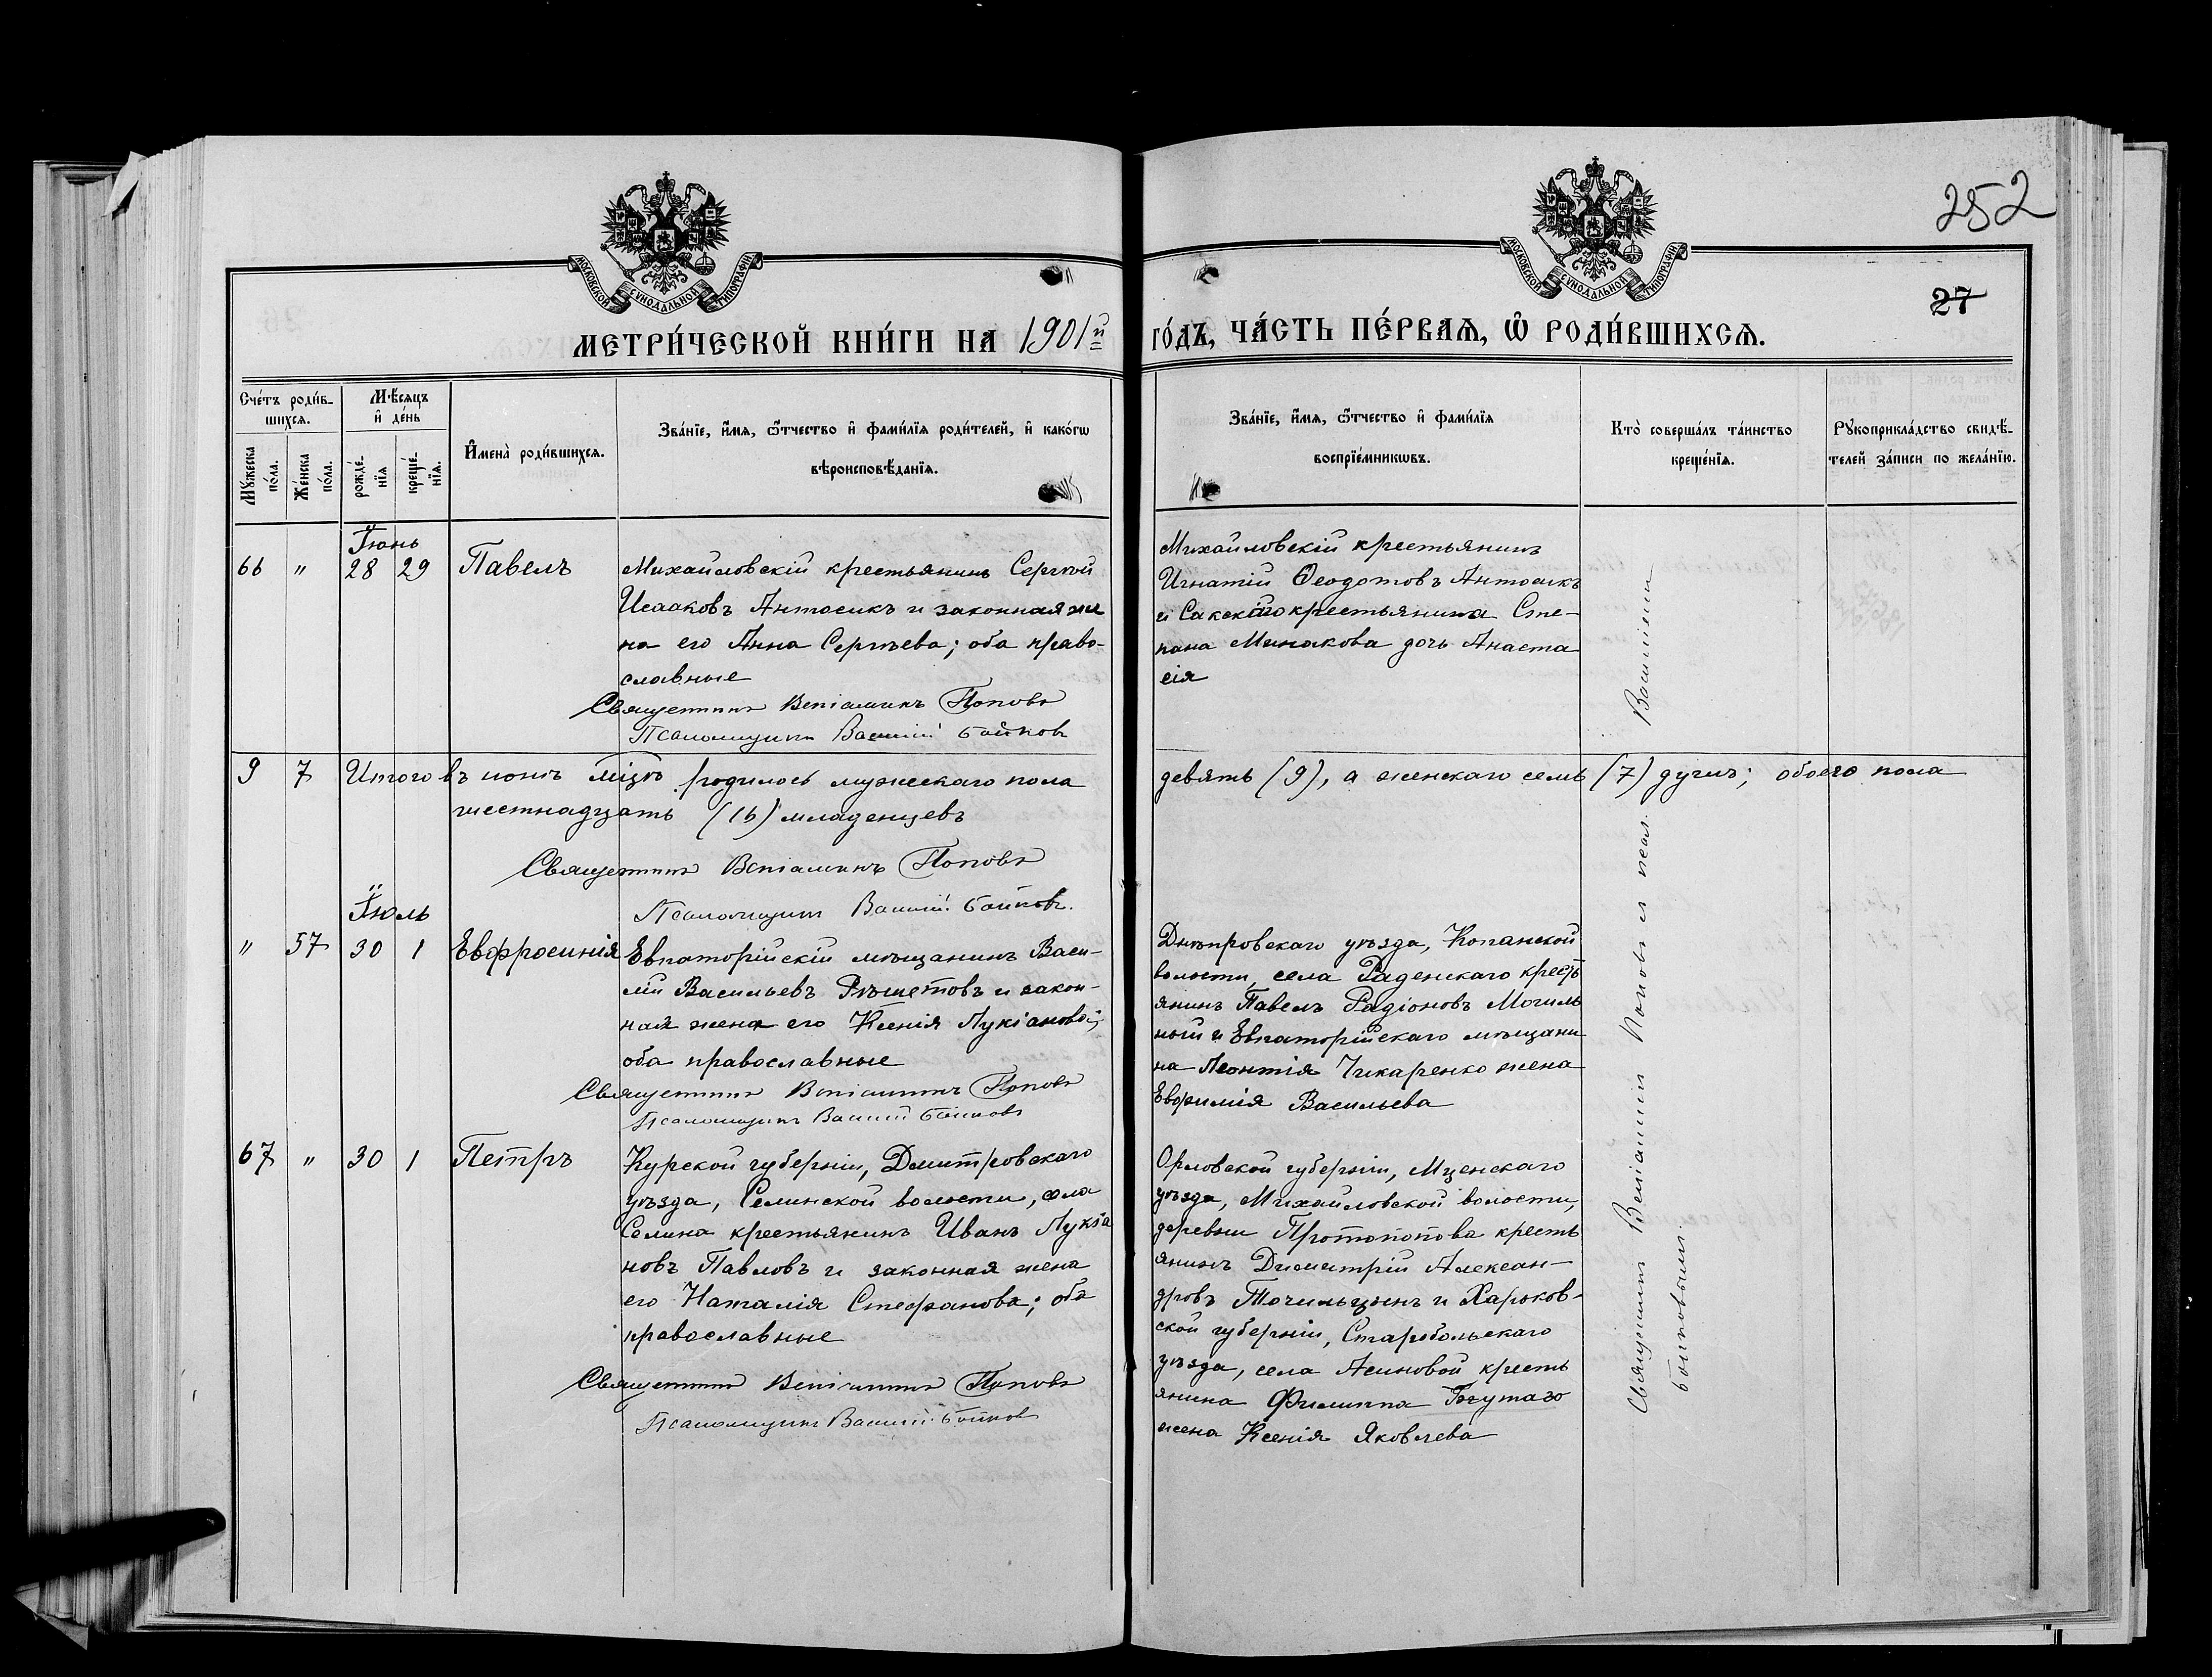 252
27
МОСКОВСКОЙ СУНОДАЛЬНОЙ ТИПОГРАФІИ
МОСКОВСКОЙ СУНОДАЛЬНОЙ ТИПОГРАФІИ
МЕТРИ́ЧЕСКОЙ КНИ́ГИ НА 1901й го́дъ, ЧА́СТЬ ПЕ́РВАѦ, Ѿ РОДИ́ВШИХСѦ.
Сче́тъ роди́в-
шихсѧ.
Мꙋжеска по́ла.
Же́нска по́ла.
Мѣ́сѧцъ
и҆ де́нь
рожде́-
нїѧ
креще́-
нїѧ.
И҆мена̀ роди́вшихсѧ.
Зва́нїе, и҆́мѧ, ѻ҆́тчество и҆ фами́лїѧ роди́телей, и҆ како́гѡ
вѣроисповѣ́данїѧ.
Зва́нїе, и҆́мѧ, ѻ҆́тчество и҆ фами́лїѧ
воспрїе́мникѡвъ.
Кто̀ соверша́лъ та́инство
креще́нїѧ.
Рꙋкоприкла́дство свидѣ́-
телей за́писи по жела́нїю.
Іюнь
66 " 28 29 Павелъ
Михайловскій крестьянинъ Сергѣй
Исааковъ Антосикъ и законная же
на его Анна Сергѣева; оба право-
славные
Священникъ Веніаминъ Поповъ
Псаломщикъ Василій Бойковъ
Михайловскій крестьянинъ
Игнатій Ѳеодотовъ Антосикъ
и Сакскаго крестьянина Сте-
пана Минакова дочь Анаста
сія
9 7 Итого въ іюнѣ мѣсяцѣ родилось мужескаго пола девять (9), а женскаго семь (7) душъ; обоего пола
шестнадцать (16) младенцевъ
Священникъ Веніаминъ Поповъ
Псаломщикъ Василій Бойковъ.
Іюль
" 57 30 1 Евфросинія
Евпаторійскій мѣщанинъ Васи-
лій Васильевъ Рѣшетовъ и закон-
ная жена его Ксенія Лукіанова;
оба православные
Священникъ Веніаминъ Поповъ
Псаломщикъ Василій Бойковъ
Днѣпровскаго уѣзда, Копанской
волости, села Раденскаго кресть
янинъ Павелъ Радіоновъ Могиль
ный и Евпаторійскаго мѣщани
на Леонтія Чикаренко жена
Евфимія Васильева
67 " 30 1 Петръ
Курской губерніи, Дмитровскаго
уѣзда, Селинской волости, села
Селина крестьянинъ Иванъ Лукіа
новъ Павловъ и законная жена
его Наталія Стефанова; оба
православные
Священникъ Веніаминъ Поповъ
Псаломщикъ Василій Бойковъ
Орловской губерніи, Мценскаго
уѣзда, Михайловской волости,
деревни Протопопова кресть
янинъ Димитрій Алексан-
дровъ Точильцынъ и Харьков-
ской губерніи, Старобѣльскаго
уѣзда, села Асиновой кресть
янина Филиппа
жена Ксенія Яковлева
Священникъ Веніаминъ Поповъ съ псал. Василіемъ
Бойковымъ.